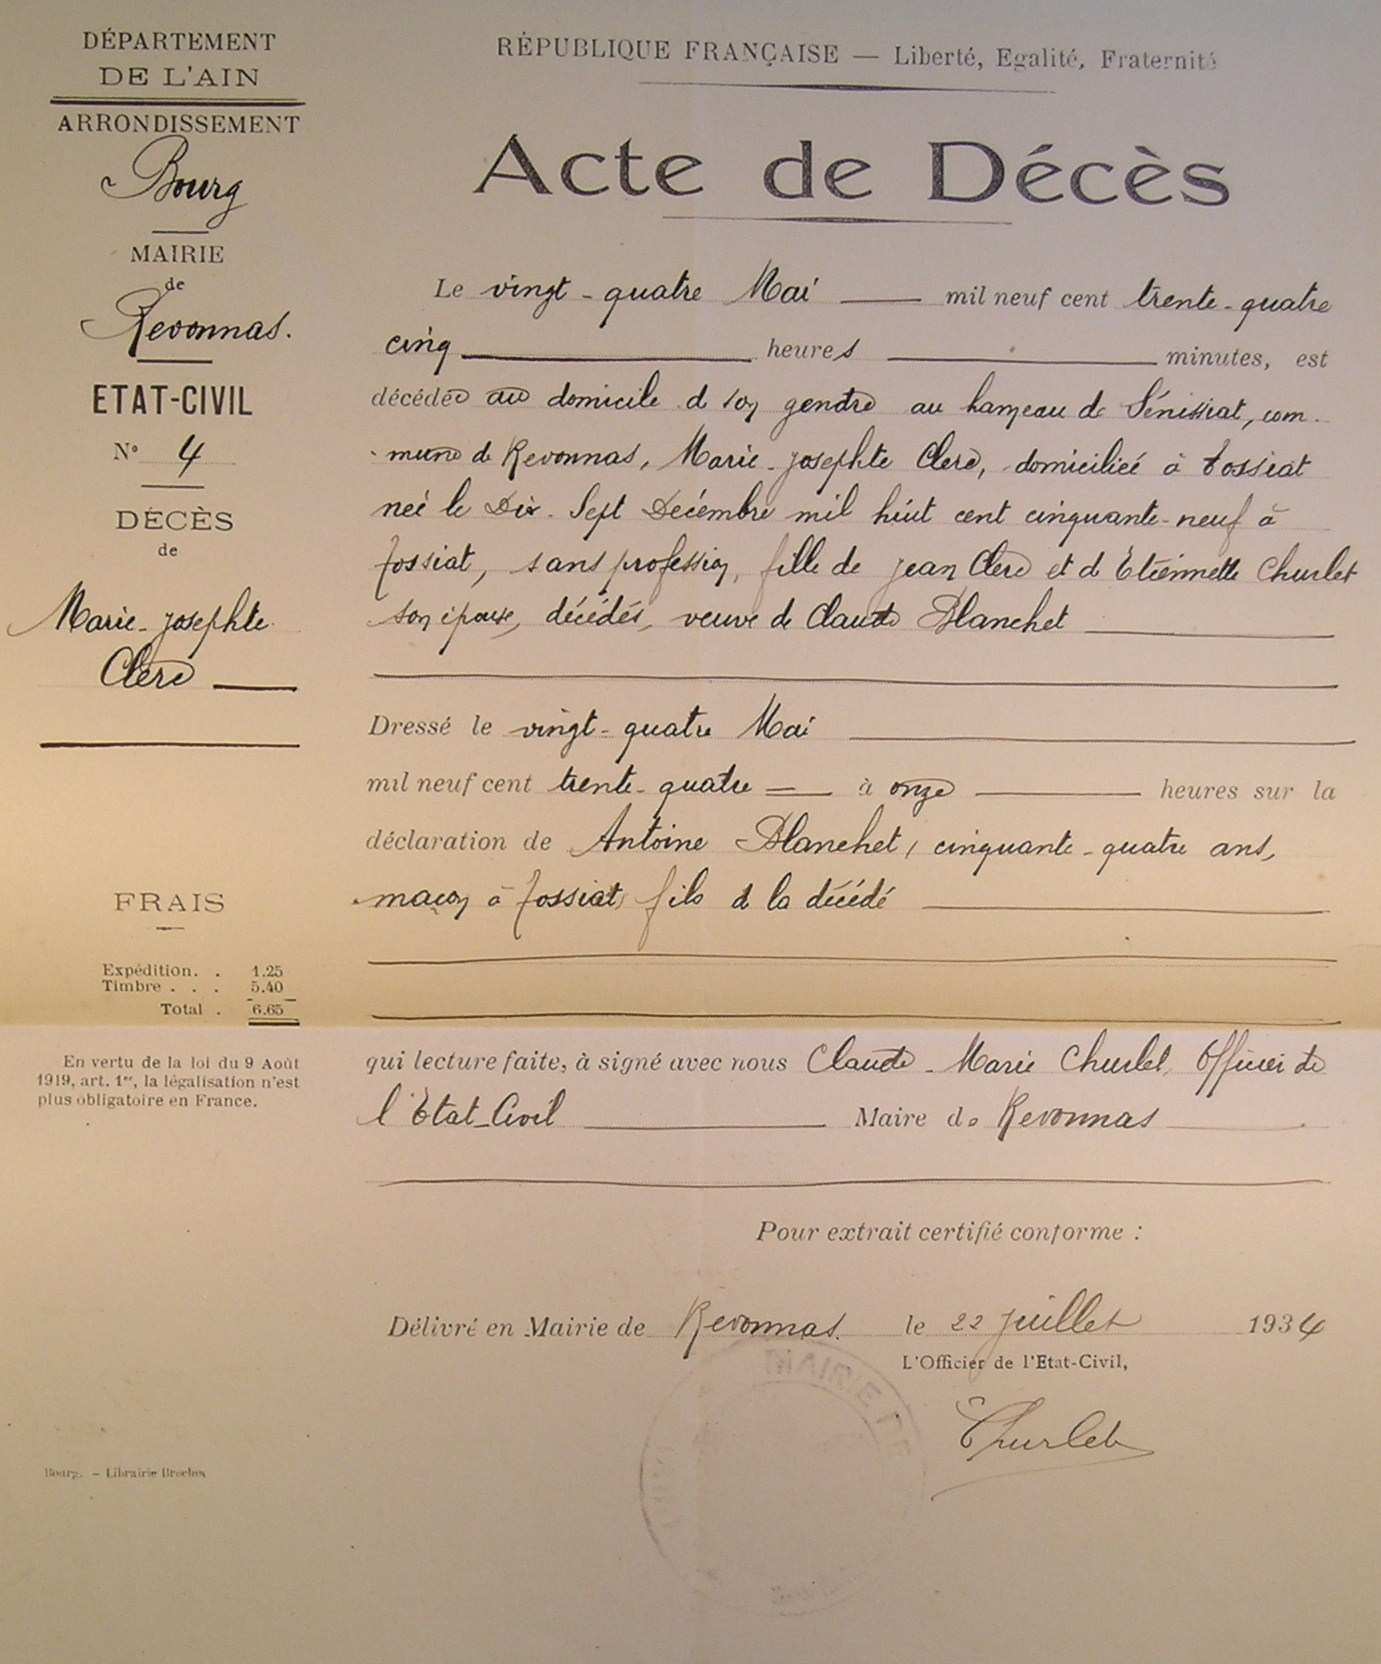 DÉPARTEMENT
DE L'AIN
ARRONDISSEMENT
Bourg
MAIRIE
de
Revonnas.
ETAT-CIVIL
N° 4
DÉCÈS
de
Marie-Josephte
Clerc
FRAIS
Expédition. . 1.25
Timbre . . . 5.40
Total . 6.65
En vertu de la loi du 9 Août
1919, art. 1er, la légalisation n'est
plus obligatoire en France.
Bourg. — Librairie Brochot
RÉPUBLIQUE FRANÇAISE — Liberté, Egalité, Fraternité
Acte de Décès
Le vingt-quatre Mai mil neuf cent trente-quatre
cinq heures minutes, est
décédée au domicile d son gendre au hameau de Sénissiat, com-
mune de Revonnas, Marie-Josephte Clerc, domiciliée à Tossiat
neé le Dix-Sept Décembre mil huit cent cinquante-neuf à
Tossiat, sans profession, fille de Jean Clerc et d Etiennette Churlet
son épouse, décédés, veuve de Claude Blanchet
Dressé le vingt-quatre Mai
mil neuf cent trente-quatre à onze heures sur la
déclaration de Antoine Blanchet, cinquante-quatre ans,
maçon à Tossiat, fils d la décédé
qui lecture faite, à signé avec nous Claude-Marie Churlet, Officier de
l'Etat-Civil Maire de Revonnas
Pour extrait certifié conforme :
Délivré en Mairie de Revonnas. le 22 Juillet 1934
L'Officier de l'Etat-Civil,
Churlet
MAIRIE DE